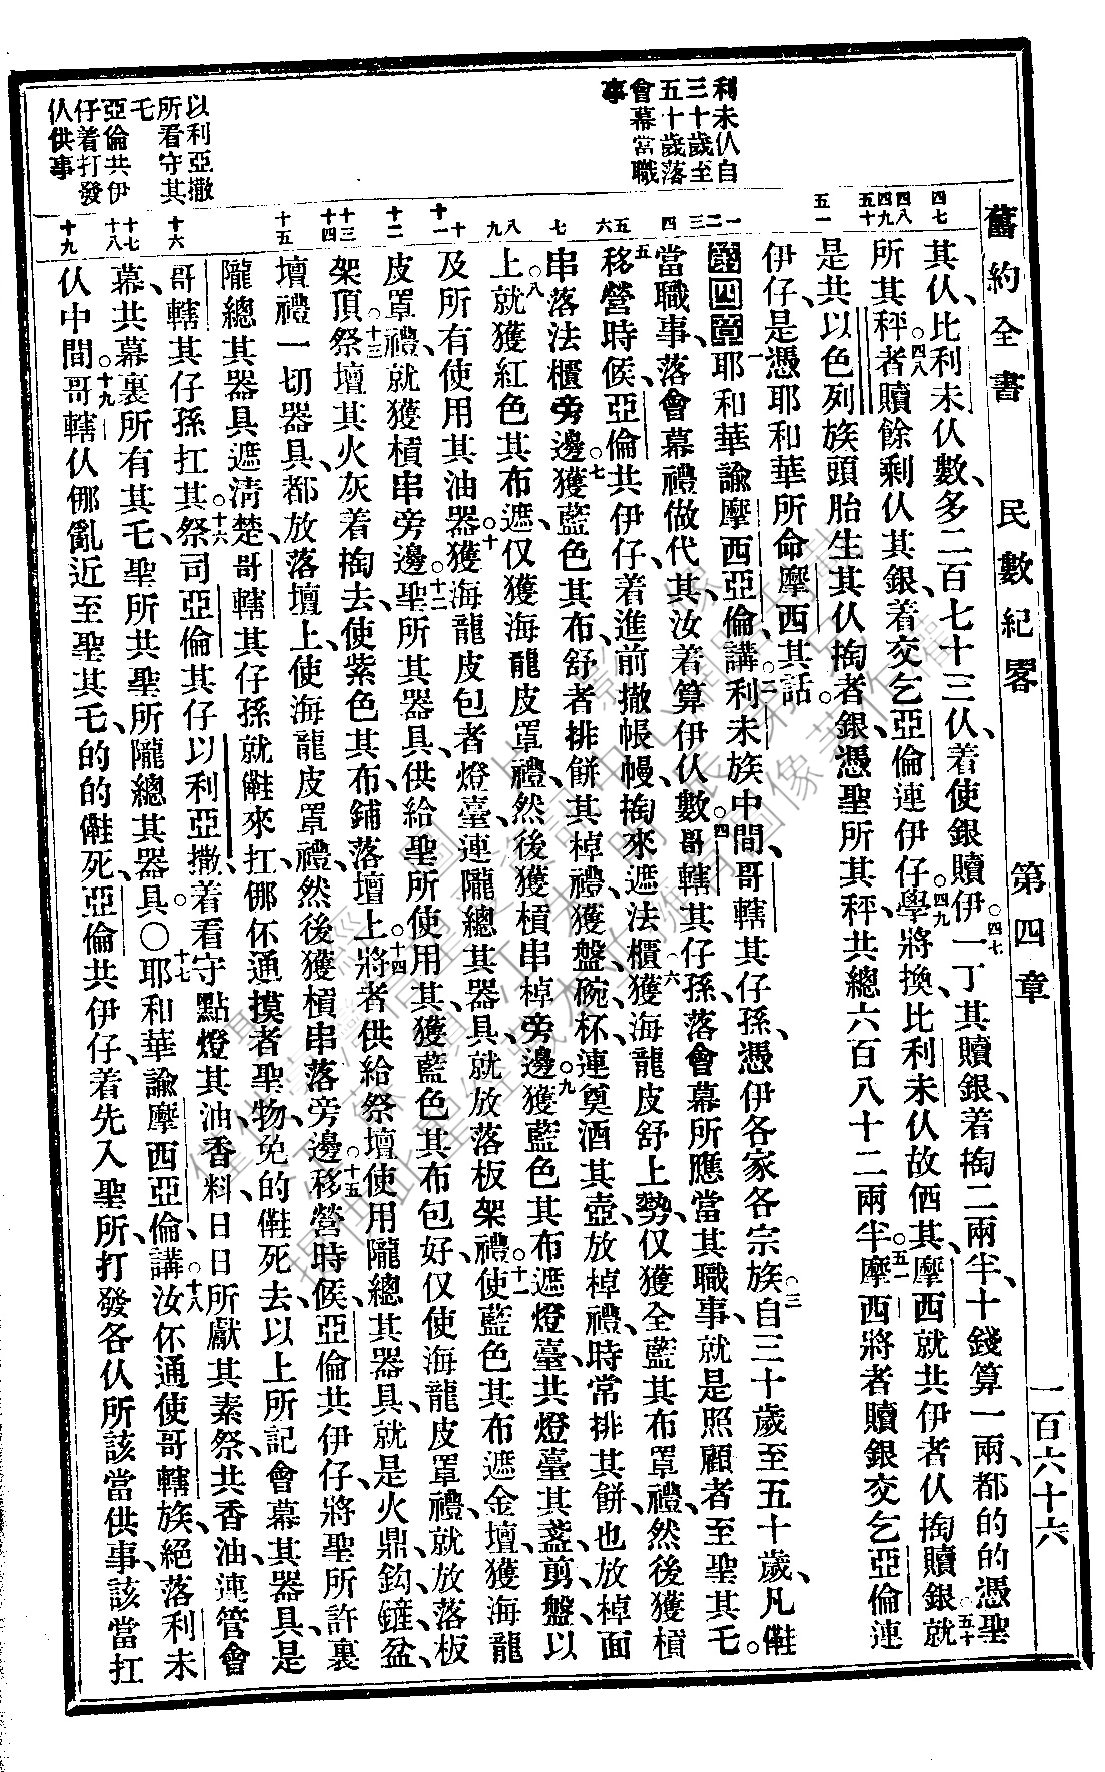 舊約全書 民數紀畧 第四章 一百六十六
利未仈自
三十歲至
五十歲落
會幕當職
事
以利亞撒
所看守其
乇
亞倫共伊
仔着打發
仈供事
四七
四八
四九
五十
五一
一
二
三
四
五
六
七
八
九
十
十一
十二
十三
十四
十五
十六
十七
十八
十九
其仈、比利未仈數、多二百七十三仈、着使銀贖伊。四七一丁其贖銀、着掏二兩半、十錢算一兩、都的的憑聖
所其秤者贖。四八餘剩仈其銀、着交乞亞倫連伊仔。四九學將換比利未仈故伵其、摩西就共伊者仈掏贖銀、。五十就
是共以色列族頭胎生其仈掏者銀、憑聖所其秤、共總六百八十二兩半。五一摩西將者贖銀交乞亞倫連
伊仔、是憑耶和華所命摩西其話。
第四章 一耶和華諭摩西亞倫講、。二利未族中間、哥轄其仔孫、憑伊各家各宗族、。三自三十歲至五十歲、凡𠆧
當職事、落會幕禮做代其、汝着算伊仈數。四哥轄其仔孫、落會幕所應當其職事、就是照顧者至聖其乇。
五移營時候、亞倫共伊仔、着進前撤帳幔、掏來遮法櫃、。六獲海龍皮舒上勢、仅獲全藍其布罩禮、然後獲槓
串落法櫃旁邊。七獲藍色其布、舒者排餅其棹禮、獲盤碗、杯、連奠酒其壺、放棹禮、時常排其餅也放棹面
上。八就獲紅色其布遮、仅獲海龍皮罩禮、然後獲槓串棹旁邊。九獲藍色其布遮燈臺、共燈臺其盞、剪、盤、以
及所有使用其油器。十獲海龍皮包者燈臺、連隴總其器具、就放落板架禮。十一使藍色其布遮金壇、獲海龍
皮罩禮、就獲槓串旁邊。十二聖所其器具、供給聖所使用其、獲藍色其布包好、仅使海龍皮罩禮、就放落板
架頂。十三祭壇其火灰着掏去、使紫色其布、鋪落壇上。十四將者供給祭壇使用隴總其器具、就是火鼎、鈎、鏟、盆、
壇禮一切器具、都放落壇上、使海龍皮罩禮、然後獲槓串落旁邊。十五移營時候、亞倫共伊仔、將聖所許裏
隴總其器具遮淸楚、哥轄其仔孫就𠆧來扛、伲伓通摸者聖物、免的𠆧死去、以上所記會幕其器具、是
哥轄其仔孫扛其。十六祭司亞倫其仔以利亞撒、着看守點燈其油、香料、日日所獻其素祭、共香油、連管會
幕、共幕裏所有其乇、聖所共聖所隴總其器具。〇十七耶和華諭摩西亞倫講、。十八汝伓通使哥轄族、絕落利未
仈中間。十九哥轄仈伲亂近至聖其乇、的的𠆧死、亞倫共伊仔、着先入聖所、打發各仈所該當供事、該當扛